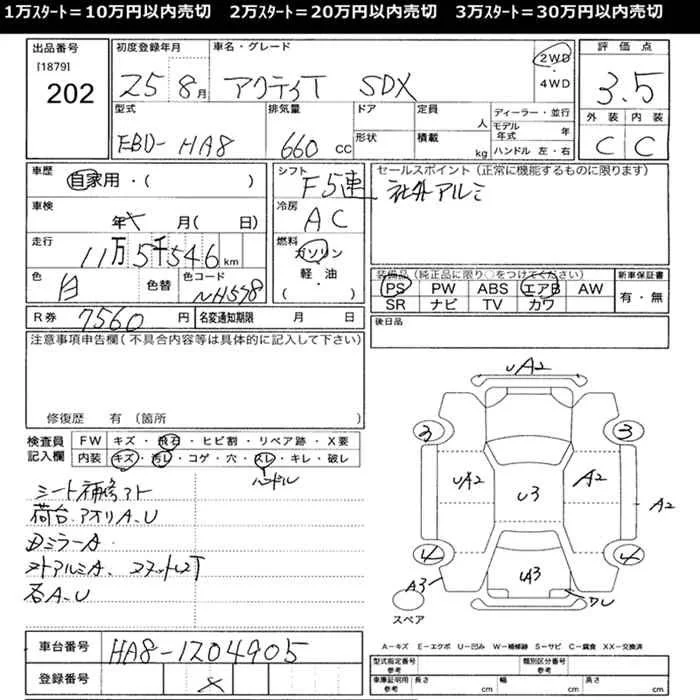 1万ｽﾀｰﾄ＝10万円以内売切　2万ｽﾀｰﾄ＝20万円以内売切　3万ｽﾀｰﾄ＝30万円以内売切
出品番号
[1879]
202
初度登録年月
25 8月
車名・グレード
アクティT SDX
2WD
・
4WD
評価点
3.5
外装 内装
C C
型式
EBD-HA8
排気量
660 cc
ドア
形状
定員
人
積載
kg
ディーラー・並行
モデル年式
年
ハンドル 左・右
車歴
自家用・( )
車検
年 月( 日)
走行
11万5千546km
色
白
色替
色コード
NH578
シフト
F5速
冷房
AC
燃料
ガソリン
・
軽・油
( )
セールスポイント(正常に機能するものに限ります)
社外アルミ
装備品(純正品に限り○をつけてください)
PS PW ABS エアB AW
SR ナビ TV カワ
新車保証書
有・無
R券 7560円
名変通知期限 月 日
後日品
注意事項申告欄(不具合内容等は具体的に記入して下さい)
修復歴 有 (箇所 )
検査員記入欄
FW キズ・飛石・ヒビ割・リペア跡・X要
内装 キズ・汚レ・コゲ・穴・スレ・キレ・破レ
ハンドル
シート補修アト
荷台、アオリA、U
DミラーA
石A、U
UA2
3 3
UA2 U3 A2 A2
4 4
A3 UA3 DU
スペア
A－キズ E－エクボ U－凹み W－補修跡 S－サビ C－腐食 XX－交換済
車台番号 HA8-1204905
登録番号
型式指定番号
参考
類別区分番号
参考
車庫証明用
参考
長さ cm 幅 cm 高さ cm